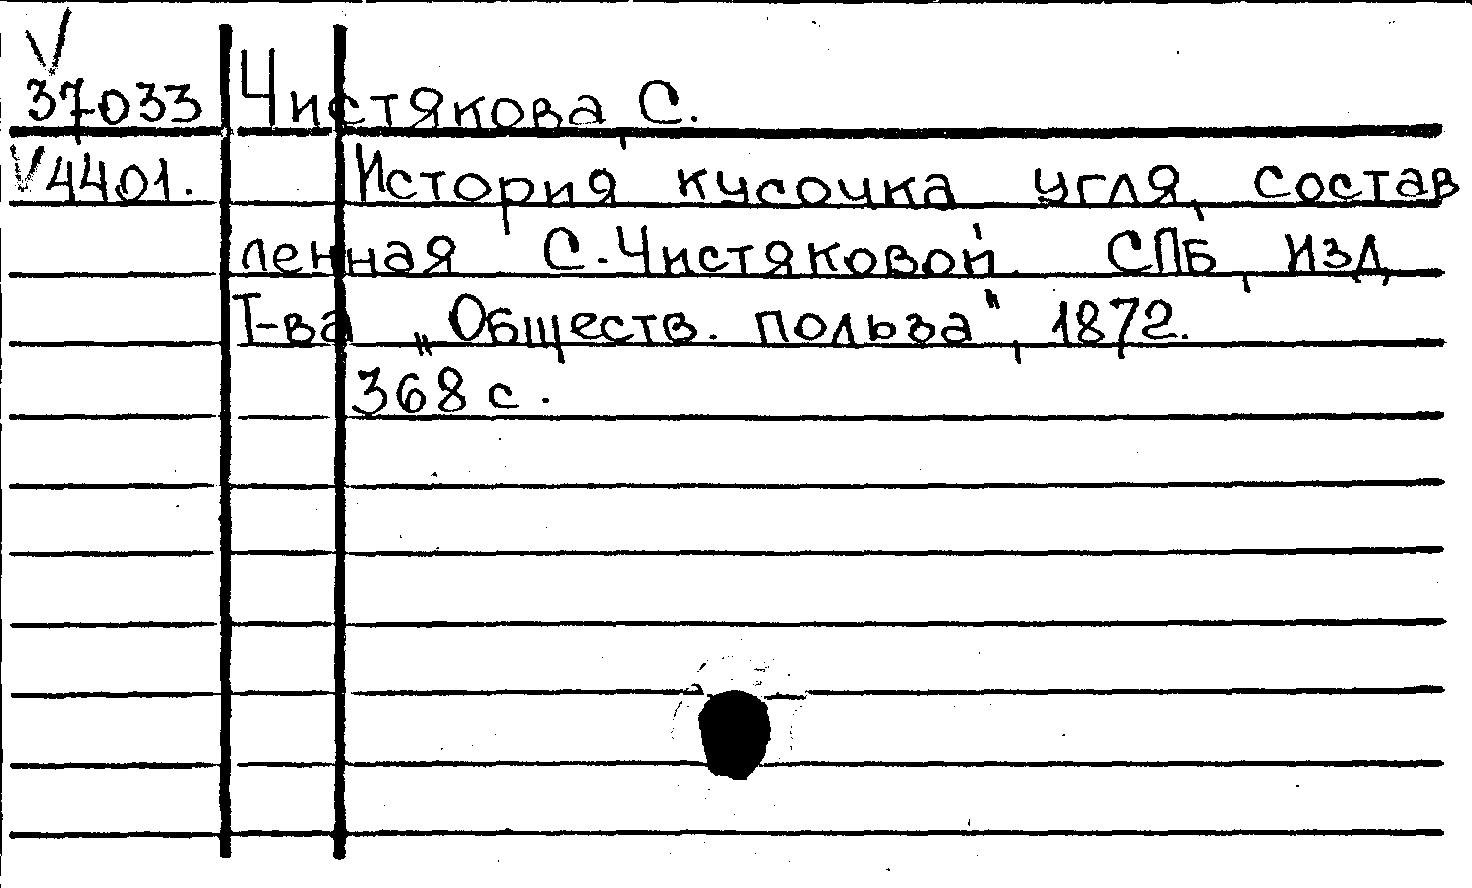 V
37033 Чистякова, С.
V4401. История кусочка угля, состав
ленная С. Чистяковой. СПБ, изд.
Т-ва „Обществ. польза", 1872.
368 с.